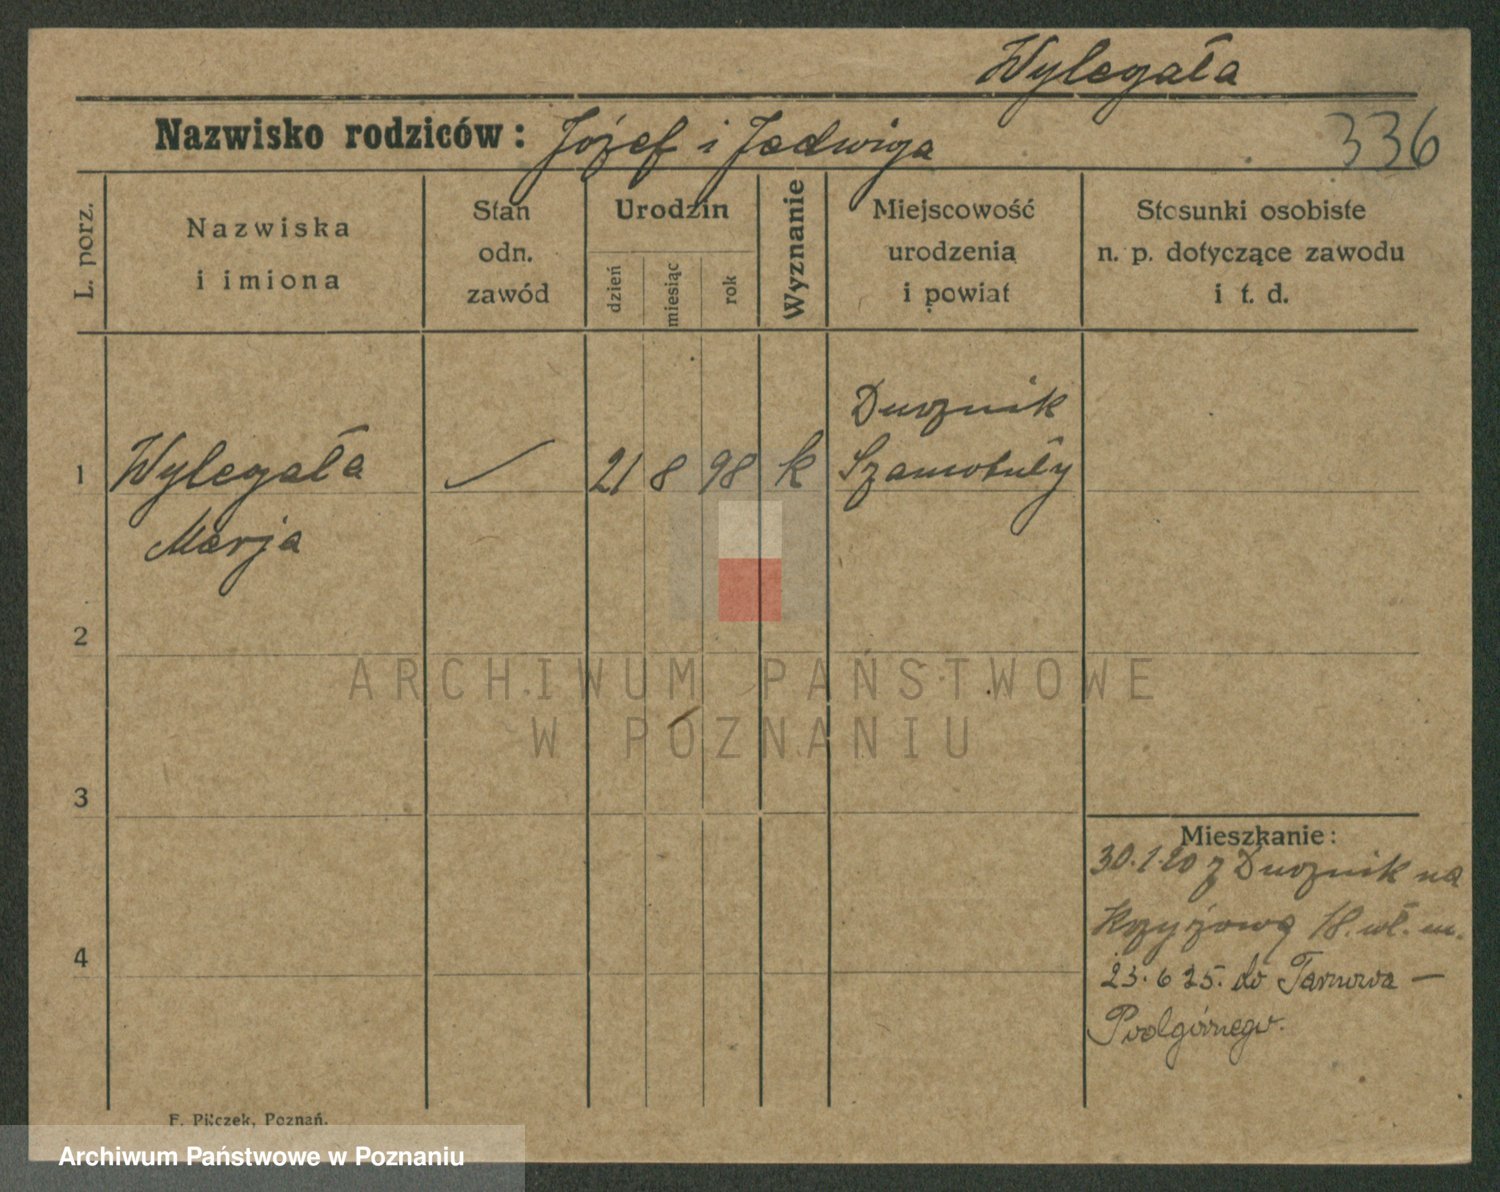 Wylegała
Nazwisko rodziców: Józef i Jadwiga 336
L. porz.
Nazwiska
i imiona
Stan
odn.
zawód
Urodzin
dzień
miesiąc
rok
Wyznanie
Miejscowość
urodzenia
i powiat
Stosunki osobiste
n. p. dotyczące zawodu
i t. d.
1 Wylegała 21 8 98 k
Marja
Dusznik
Szamotuły
2
3
4
Mieszkanie:
30.1.20 z Dusznik na
Krzyżową 18. wł. m.
23.6 25. do Tarnowa -
Podgórnego.
F. Pilczek, Poznań.
ARCHIWUM PAŃSTWOWE
W POZNANIU
Archiwum Państwowe w Poznaniu